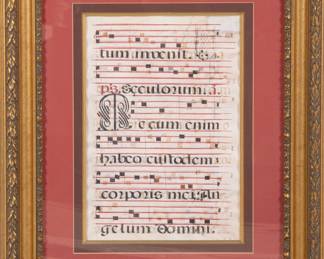 tum invenit.
ps. seculorum. a.
Mecum enim
habeo custodem
corporis mei: An
gelum Domini.